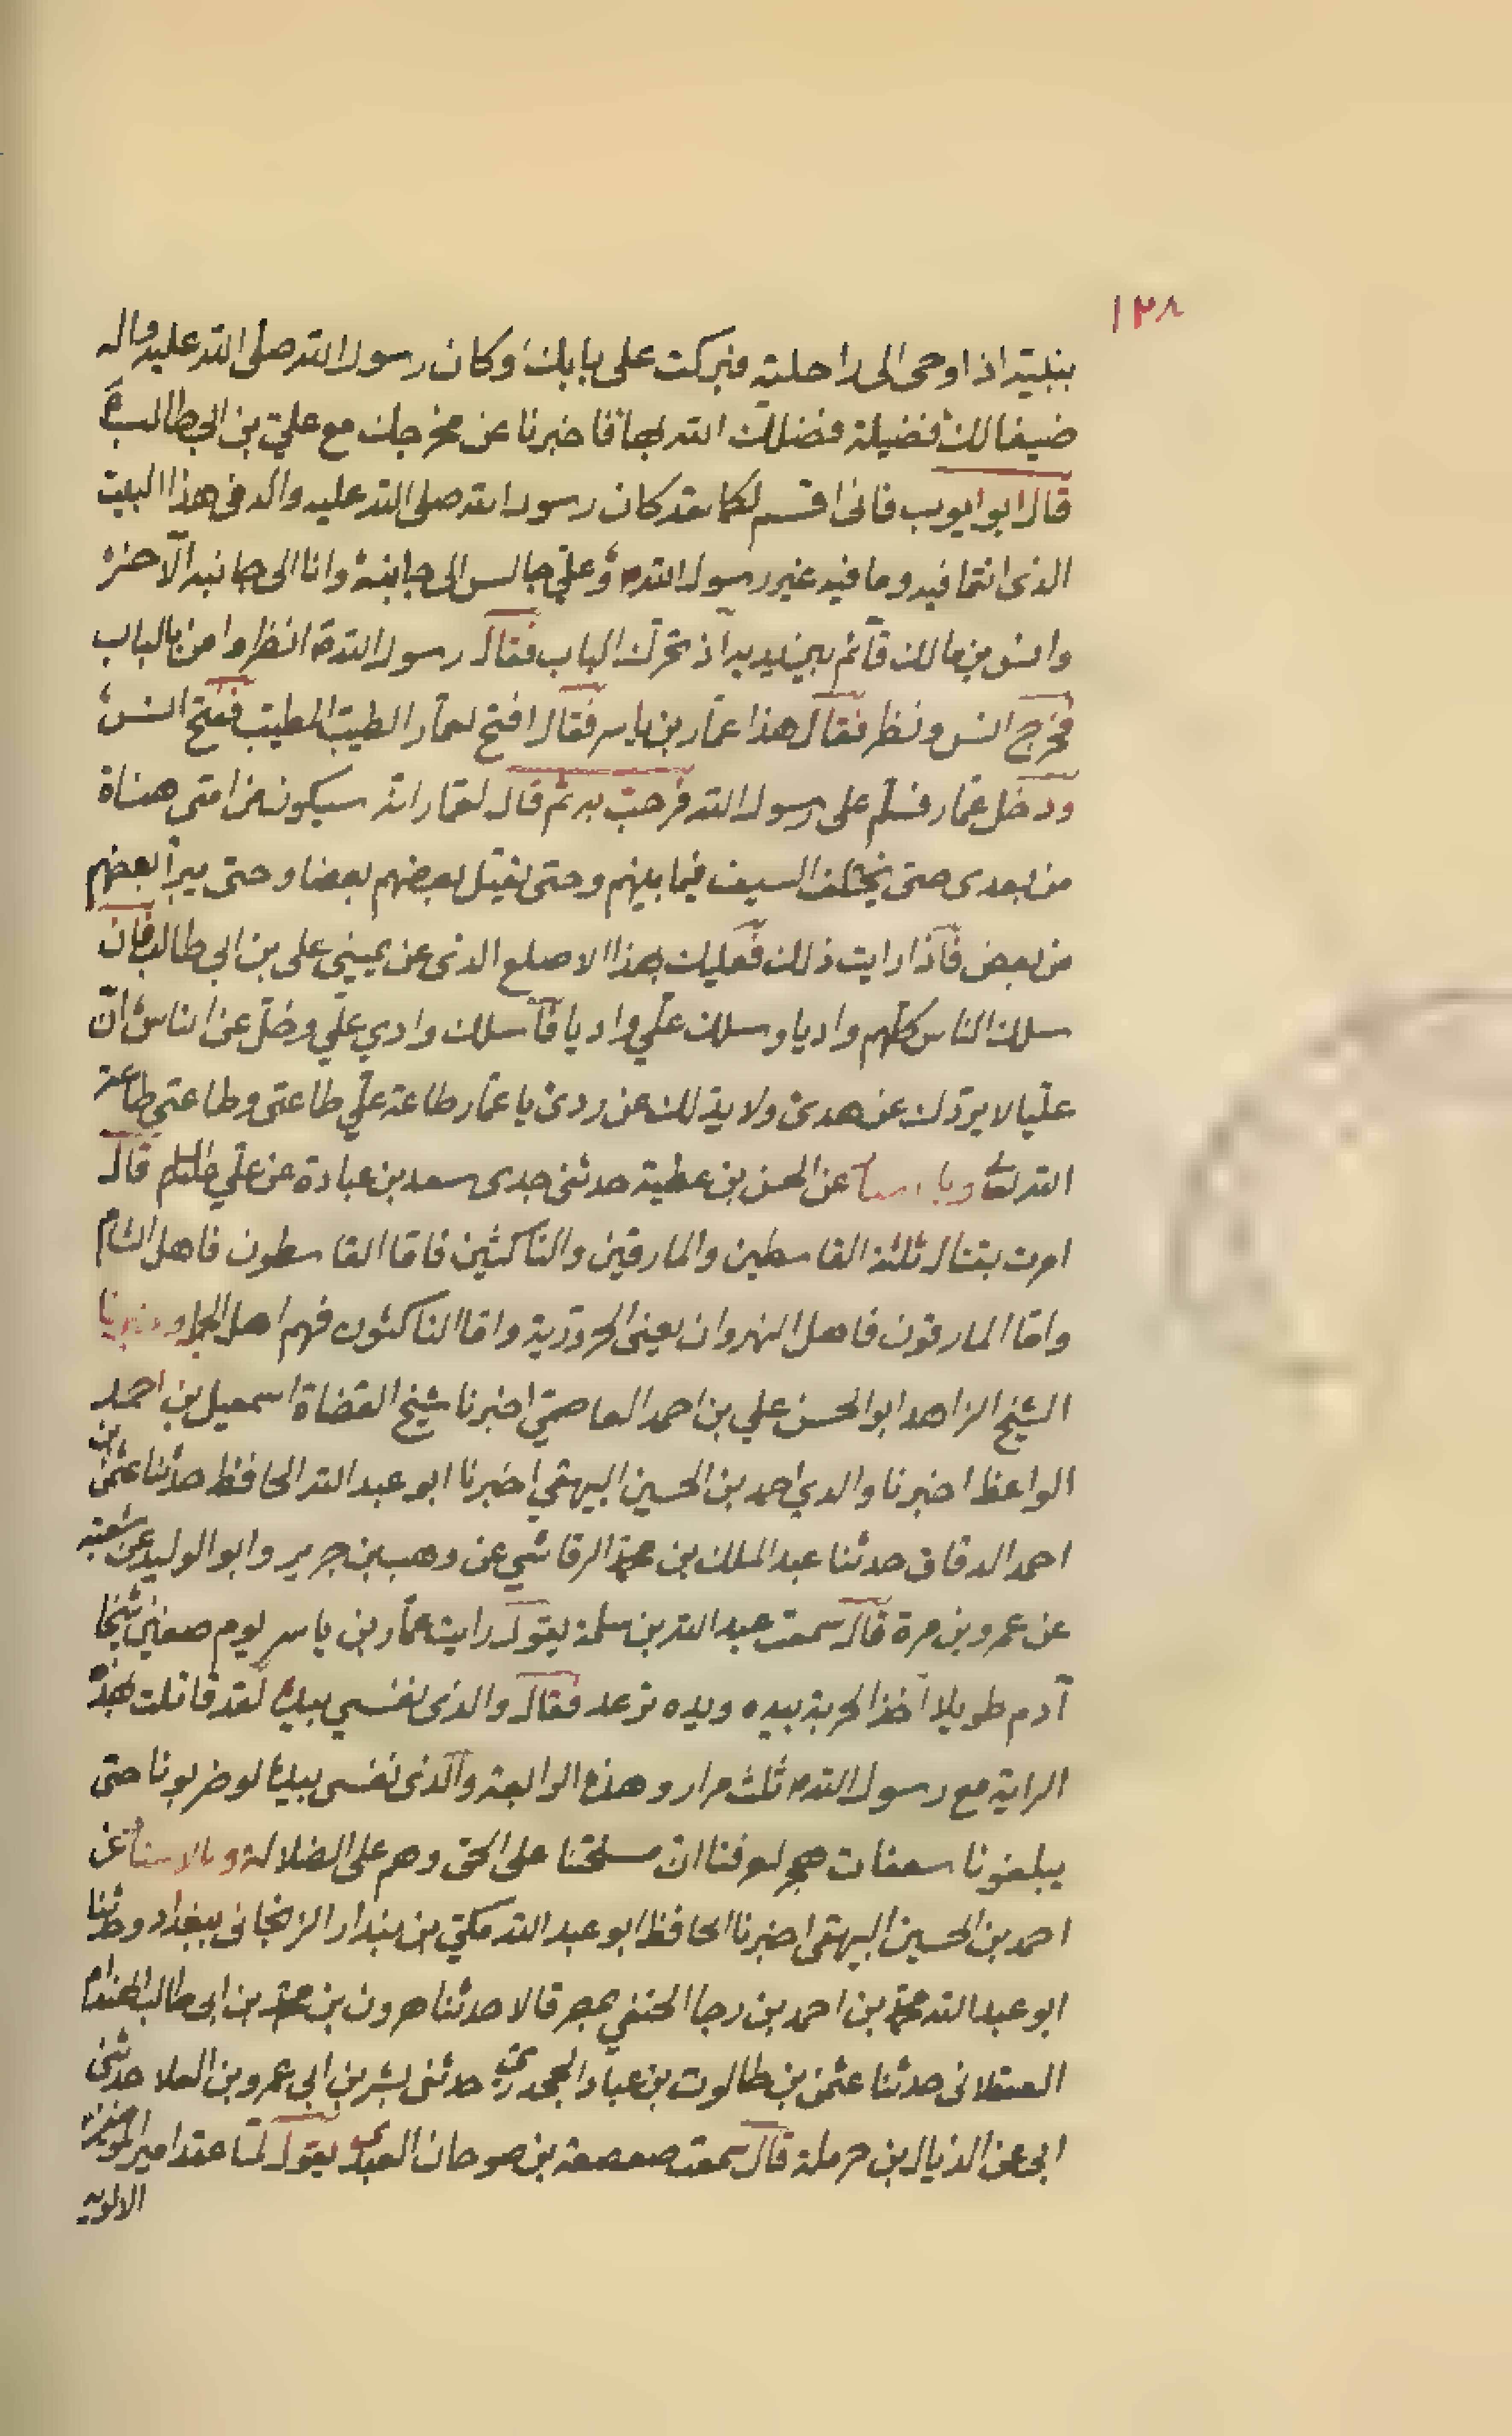 ١٢٨
بنبيّه اذ اوحى الى راحلته فبركت على بابك وكان رسول الله صلى الله عليه واله
ضيفا لك فضيلة فضلك الله بها فاخبرنا عن مخرجك مع علي بن ابي طالب ع
قال ابو ايوب فانى اقسم لكما لقد كان رسول الله صلى الله عليه واله فى هذا البيت
الذى انتما فيه وما فيه غير رسول الله ص وعليّ جالس الى جانبه وانا الى جانبه الآخر
وانس بن مالك قآئم بين يديه اذ تحرّك الباب فقال رسول الله ص انظروا من بالباب
فخرج انس ونظر فقال هذا عمّار بن ياسر فقال افتح لعمّار الطيّب المطيّب ففتح انس
ودخل عمّار فسلّم على رسول الله فرحبّ به ثم قال لعمّار انه سيكون من امتى هناة
من بعدى حتى يختلف السيف فيما بينهم وحتى يقتل بعضهم بعضا وحتى يبرأ بعضهم
من بعض فاذا رايت ذلك فعليك بهذا الاصلع الذى عن يمينى على بن ابي طالب فان
سلك الناس كلّهم واديا وسلك عليّ واديا فآسلك وادي عليّ وخلّ عن الناس انّ
عليّا لا يردّك عن هدى ولا يدلك عن ردى يا عمّار طاعة عليّ طاعتى وطاعتى طاعة
الله تعالى عن الحسن بن عطية حدثنى جدى سعد بن عبادة عن عليّ قال
امرت بقتال ثلثة القاسطين والمارقين والنّاكثين فامّا القاسطون فاهل الشام
وامّا المارقون فاهل النهروان يعنى الحروريّة وامّا الناكثون فهم اهل الجمل واخبرنا
الشيخ الزاهد ابو الحسن علي بن احمد العاصميّ اخبرنا شيخ القضاة اسمعيل بن احمد
الواعظ اخبرنا والدي احمد بن الحسين البيهقي اخبرنا ابو عبد الله الحافظ حدثنا عثمن بن
احمد الدقاق حدثنا عبد الملك بن محمد الرقاشي عن وهب بن جرير وابو الوليد عن شعبة
عن عمرو بن مرة قال سمعت عبد الله بن سلمة يقول رايت عمّار بن ياسر يوم صفين شيخا
آدم طويلا آخذ الحربة بيده ويده ترعد فقال والذى نفسي بيده لقد قاتلت بهذه
الراية مع رسول الله ص ثلث مرار وهذه الرابعة والذى نفسى بيده لو ضربونا حتى
يبلغونا سعفات هجر لعرفنا انّ مسلحتنا على الحق وهم على الضلالة وبالاسناد عن
احمد بن الحسين البيهقى اخبرنا الحافظ ابو عبد الله مكي بن بندار الزنجانى ببغداد وحدثنا
ابو عبد الله محمد بن احمد بن رجا الحنفي بمصر قالا حدثنا هرون بن محمد بن ابى
العسقلانى حدثنا عثمن بن طالوت بن عباد الجحدري حدثنى بشر بن ابى عمرو بن العلا حدثنى
ابى عن الذيال بن حرملة قال سمعت صعصعة بن صوحان العبدي يقول لمّا عقد امير المومنين
الالويه